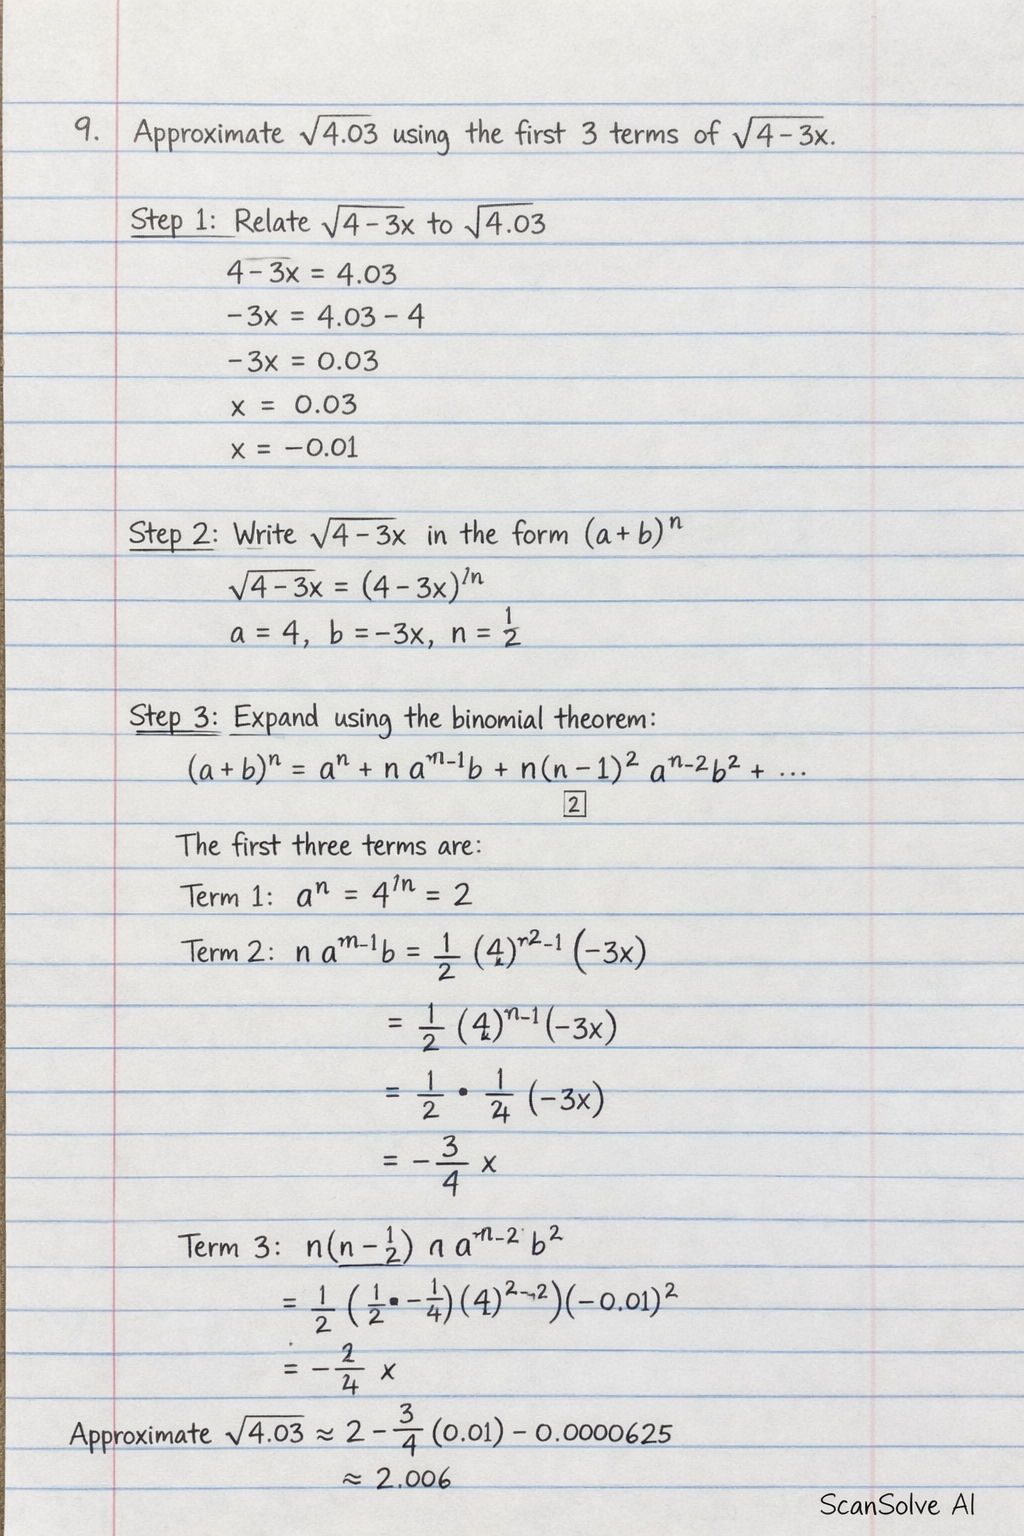 9. Approximate √4.03 using the first 3 terms of √4-3x.
Step 1: Relate √4-3x to √4.03
4-3x = 4.03
-3x = 4.03 - 4
-3x = 0.03
x = 0.03
x = -0.01
Step 2: Write √4-3x in the form (a+b)ⁿ
√4-3x = (4-3x)^1n
a = 4, b = -3x, n = 1/2
Step 3: Expand using the binomial theorem:
(a+b)^n = a^n + n a^m-1 b + n(n-1)^2 a^n-2 b^2 + ...
2
The first three terms are:
Term 1: a^n = 4^1n = 2
Term 2: n a^m-1 b = 1/2 (4)^r2-1 (-3x)
= 1/2 (4)^n-1 (-3x)
= 1/2 • 1/4 (-3x)
= -3/4 x
Term 3: n(n-1/2) n a^-n-2 b^2
= 1/2 (1/2•-1/4)(4)^2-2)(-0.01)^2
= -2/4 x
Approximate √4.03 ≈ 2 - 3/4 (0.01) - 0.0000625
≈ 2.006
ScanSolve AI